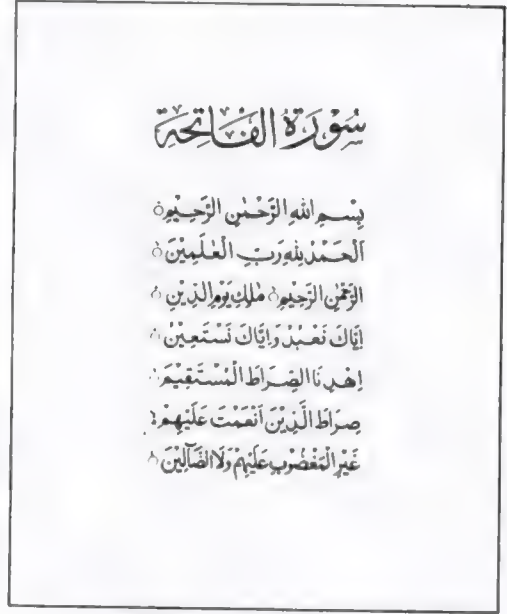 سُوْرَةُ الْفَاتِحَةِ
بِسْمِ اللهِ الرَّحْمٰنِ الرَّحِيْمِ ۝
اَلْحَمْدُ لِلّٰهِ رَبِّ الْعٰلَمِيْنَ ۝
الرَّحْمٰنِ الرَّحِيْمِ ۝ مٰلِكِ يَوْمِ الدِّيْنِ ۝
اِيَّاكَ نَعْبُدُ وَاِيَّاكَ نَسْتَعِيْنُ ۝
اِهْدِنَا الصِّرَاطَ الْمُسْتَقِيْمَ ۝
صِرَاطَ الَّذِيْنَ اَنْعَمْتَ عَلَيْهِمْ ۝
غَيْرِ الْمَغْضُوْبِ عَلَيْهِمْ وَلَا الضَّآلِّيْنَ ۝